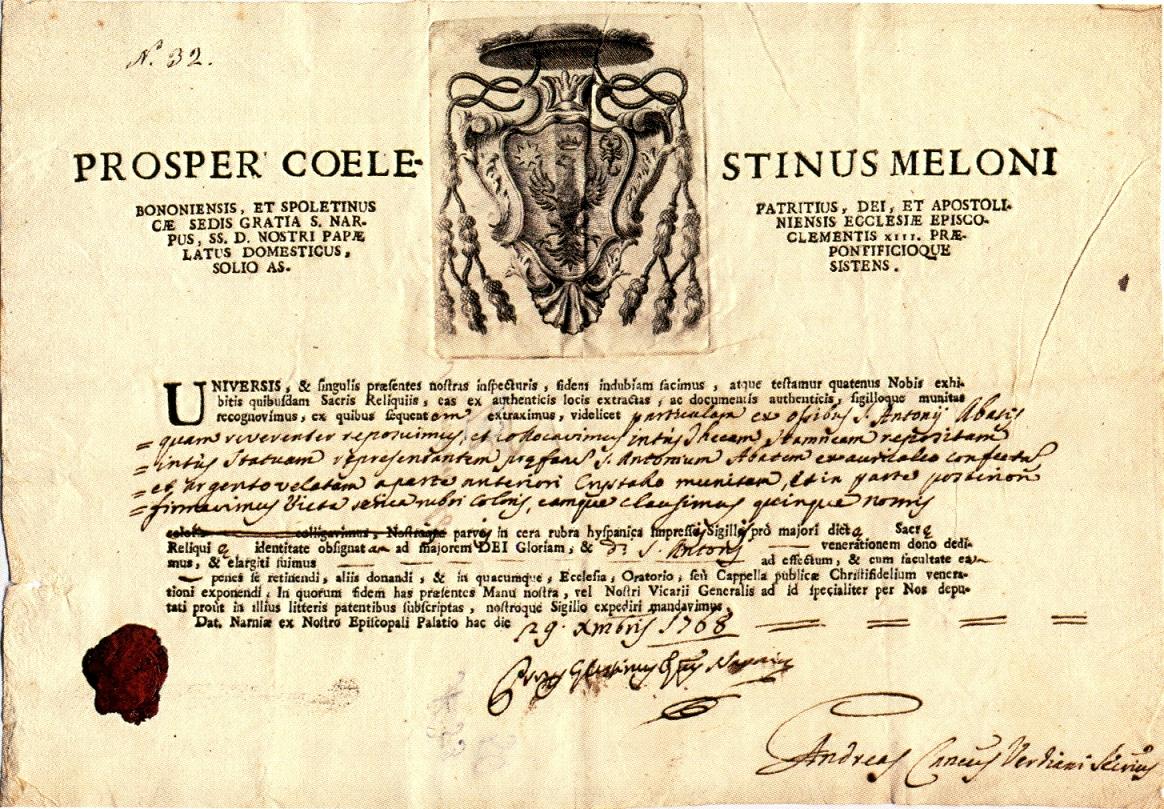 N. 32.
PROSPER COELE- STINUS MELONI
BONONIENSIS, ET SPOLETINUS PATRITIUS, DEI, ET APOSTOLI-
CÆ SEDIS GRATIA S. NAR- NIENSIS ECCLESIÆ EPISCO-
PUS, SS. D. NOSTRI PAPÆ CLEMENTIS XIII. PRÆ-
LATUS DOMESTICUS, PONTIFICIOQUE
SOLIO AS- SISTENS.
UNIVERSIS, & singulis præsentes nostras inspecturis, fidem indubiam facimus, atque testamur quatenus Nobis exhi-
bitis quibusdam Sacris Reliquiis, eas ex authenticis locis extractas, ac documentis authenticis, sigilloque munitas
recognovimus, ex quibus sequentem extraximus, videlicet particulam ex ossibus S. Antonij Abatis
quam reverenter reposuimus, et collocavimus intùs Thecam stamneam repositam
intùs Statuam representantem præfatum S. Antonium Abatem ex auricalco
et argento velatam a parte anteriori Crystallo munitam, et in parte posteriori
firmavimus Vitta serica rubri coloris, eamque clausimus quinque
coloris colligavimus, Nostroque parvis in cera rubra hyspanica impressis Sigillis pro majori dictæ Sacræ
Reliquiæ identitate obsignatam ad majorem DEI Gloriam, & d. S. Antonij venerationem dono dedi-
mus, & elargiti fuimus ad effectum, & cum facultate eam
penes se retinendi, aliis donandi, & in quacumque, Ecclesia, Oratorio, seù Cappella publicæ Christifidelium venera-
tioni exponendi, In quorum fidem has præsentes Manu nostra, vel Nostri Vicarii Generalis ad id specialiter per Nos depu-
tati prout in illius litteris patentibus subscriptas, nostroque Sigillo expediri mandavimus,
Dat. Narniæ ex Nostro Episcopali Palatio hac die 29. Xmbris 1768
Andreas Verdiani